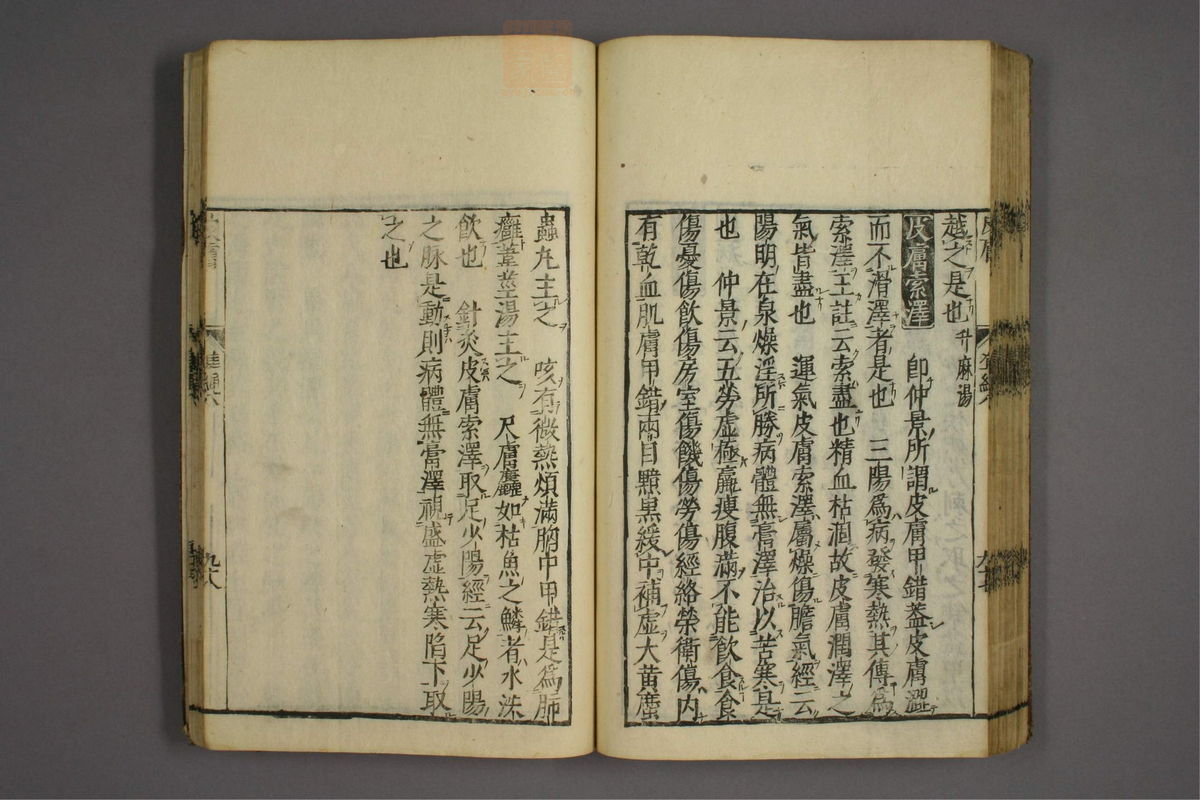 越之是也 升麻湯
皮膚索澤 即仲景所謂皮膚甲錯蓋皮膚澀
而不滑澤者是也 三陽爲病發寒熱其傳爲
索澤王註云索盡也精血枯涸故皮膚潤澤之
氣皆盡也 運氣皮膚索澤屬燥傷膽氣經云
陽明在泉燥淫所勝病體無膏澤治以苦寒是
也 仲景云五勞虛極羸瘦腹滿不能飲食食
傷憂傷飲傷房室傷饑傷勞傷經絡榮衛傷内
有乾血肌膚甲錯兩目黯黒緩中補虚大黄䗪
蟲丸主之 咳有微熱煩滿胸中甲錯是爲肺
癰葦莖湯主之 尺膚麤如枯魚之鱗者水泆
飲也 針灸皮膚索澤取足少陽經云足少陽
之脉是動則病體無膏澤視盛虚熱寒陷下取
之也
九十八